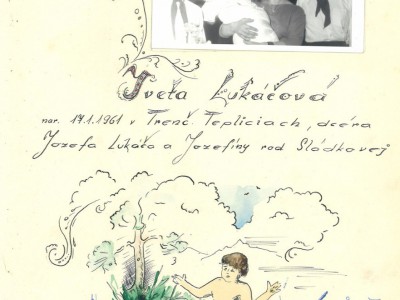 Iveta Lukáčová
nar. 17.1.1961 v Trenč. Tepliciach, dcéra
Jozefa Lukáča a Jozefíny rod Sládkovej